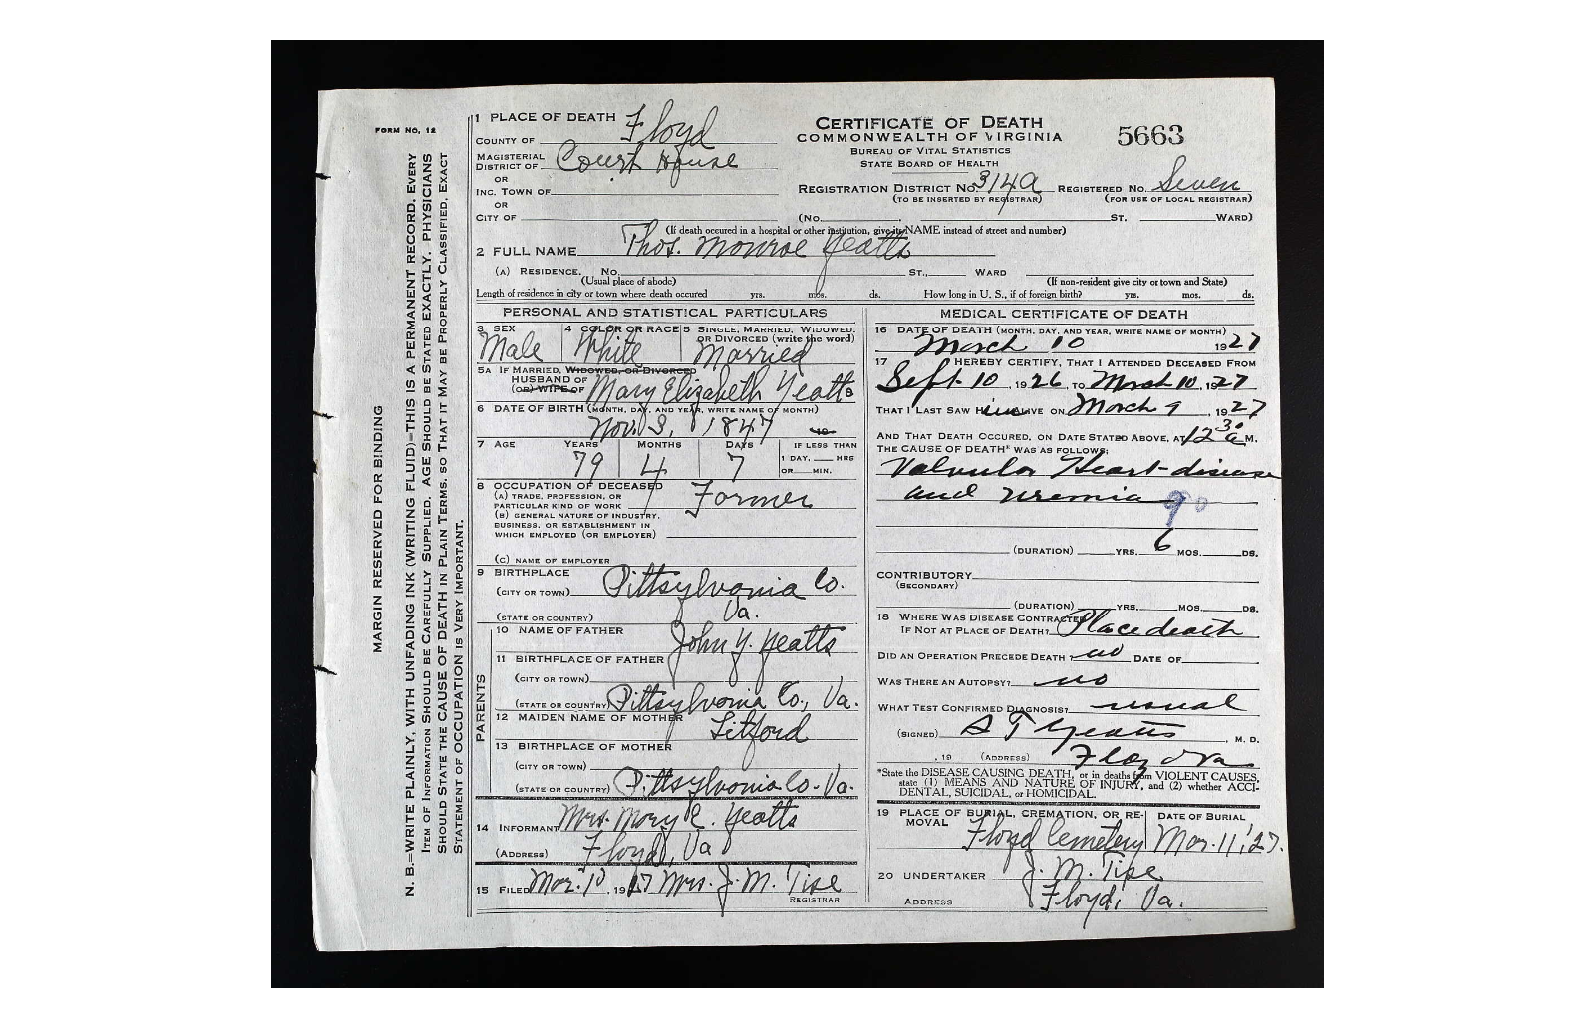 FORM NO. 12
MARGIN RESERVED FOR BINDING
N. B.—WRITE PLAINLY, WITH UNFADING INK (WRITING FLUID)—THIS IS A PERMANENT RECORD. EVERY
ITEM OF INFORMATION SHOULD BE CAREFULLY SUPPLIED. AGE SHOULD BE STATED EXACTLY. PHYSICIANS
SHOULD STATE THE CAUSE OF DEATH IN PLAIN TERMS, SO THAT IT MAY BE PROPERLY CLASSIFIED. EXACT
STATEMENT OF OCCUPATION IS VERY IMPORTANT.
1 PLACE OF DEATH
COUNTY OF Floyd
MAGISTERIAL
DISTRICT OF Court House
OR
INC. TOWN OF
OR
CITY OF
CERTIFICATE OF DEATH
COMMONWEALTH OF VIRGINIA
BUREAU OF VITAL STATISTICS
STATE BOARD OF HEALTH
5663
REGISTRATION DISTRICT NO. 314A REGISTERED NO. Seven
(TO BE INSERTED BY REGISTRAR) (FOR USE OF LOCAL REGISTRAR)
(NO. ST. WARD)
(If death occured in a hospital or other institution, give its NAME instead of street and number)
2 FULL NAME Thos. Monroe Yeatts
(A) RESIDENCE. NO. ST., WARD
(Usual place of abode) (If non-resident give city or town and State)
Length of residence in city or town where death occured yrs. mos. ds. How long in U. S., if of foreign birth? yrs. mos. ds.
PERSONAL AND STATISTICAL PARTICULARS
3 SEX 4 COLOR OR RACE 5 SINGLE, MARRIED, WIDOWED,
OR DIVORCED (write the word)
Male White Married
5A IF MARRIED, WIDOWED, OR DIVORCED
HUSBAND OF
(OR) WIFE OF Mary Elizabeth Yeatts
6 DATE OF BIRTH (MONTH, DAY, AND YEAR, WRITE NAME OF MONTH)
Nov. 3, 1847
7 AGE YEARS MONTHS DAYS IF LESS THAN
79 4 7 1 DAY, HRS
OR MIN.
8 OCCUPATION OF DECEASED
(A) TRADE, PROFESSION, OR
PARTICULAR KIND OF WORK Farmer
(B) GENERAL NATURE OF INDUSTRY,
BUSINESS, OR ESTABLISHMENT IN
WHICH EMPLOYED (OR EMPLOYER)
(C) NAME OF EMPLOYER
9 BIRTHPLACE
(CITY OR TOWN) Pittsylvania Co.
(STATE OR COUNTRY) Va.
PARENTS
10 NAME OF FATHER John Y. Yeatts
11 BIRTHPLACE OF FATHER
(CITY OR TOWN)
(STATE OR COUNTRY) Pittsylvania Co., Va.
12 MAIDEN NAME OF MOTHER
13 BIRTHPLACE OF MOTHER
(CITY OR TOWN)
(STATE OR COUNTRY) Pittsylvania Co. Va.
14 INFORMANT Mrs. Mary E. Yeatts
(ADDRESS) Floyd, Va
15 FILED Mar. 10, 1927 Mrs. J. M. Tise
REGISTRAR
MEDICAL CERTIFICATE OF DEATH
16 DATE OF DEATH (MONTH, DAY, AND YEAR, WRITE NAME OF MONTH)
March 10 1927
17 HEREBY CERTIFY, THAT I ATTENDED DECEASED FROM
Sept. 10, 1926, TO March 10, 1927
THAT I LAST SAW Him ALIVE ON March 9, 1927
AND THAT DEATH OCCURED, ON DATE STATED ABOVE, AT 12 30 a M.
THE CAUSE OF DEATH* WAS AS FOLLOWS:
Valvular Heart-disease
and uremia 90
(DURATION) YRS. 6 MOS. DS.
CONTRIBUTORY
(SECONDARY)
(DURATION) YRS. MOS. DS.
18 WHERE WAS DISEASE CONTRACTED
IF NOT AT PLACE OF DEATH? Place death
DID AN OPERATION PRECEDE DEATH? no DATE OF
WAS THERE AN AUTOPSY? no
WHAT TEST CONFIRMED DIAGNOSIS? usual
(SIGNED) Yeatts, M. D.
, 19 (ADDRESS) Floyd Va
*State the DISEASE CAUSING DEATH, or in deaths from VIOLENT CAUSES,
state (1) MEANS AND NATURE OF INJURY, and (2) whether ACCI-
DENTAL, SUICIDAL, or HOMICIDAL.
19 PLACE OF BURIAL, CREMATION, OR RE-
MOVAL DATE OF BURIAL
Floyd Cemetery Mar. 11, '27.
20 UNDERTAKER J. M. Tise
ADDRESS Floyd, Va.